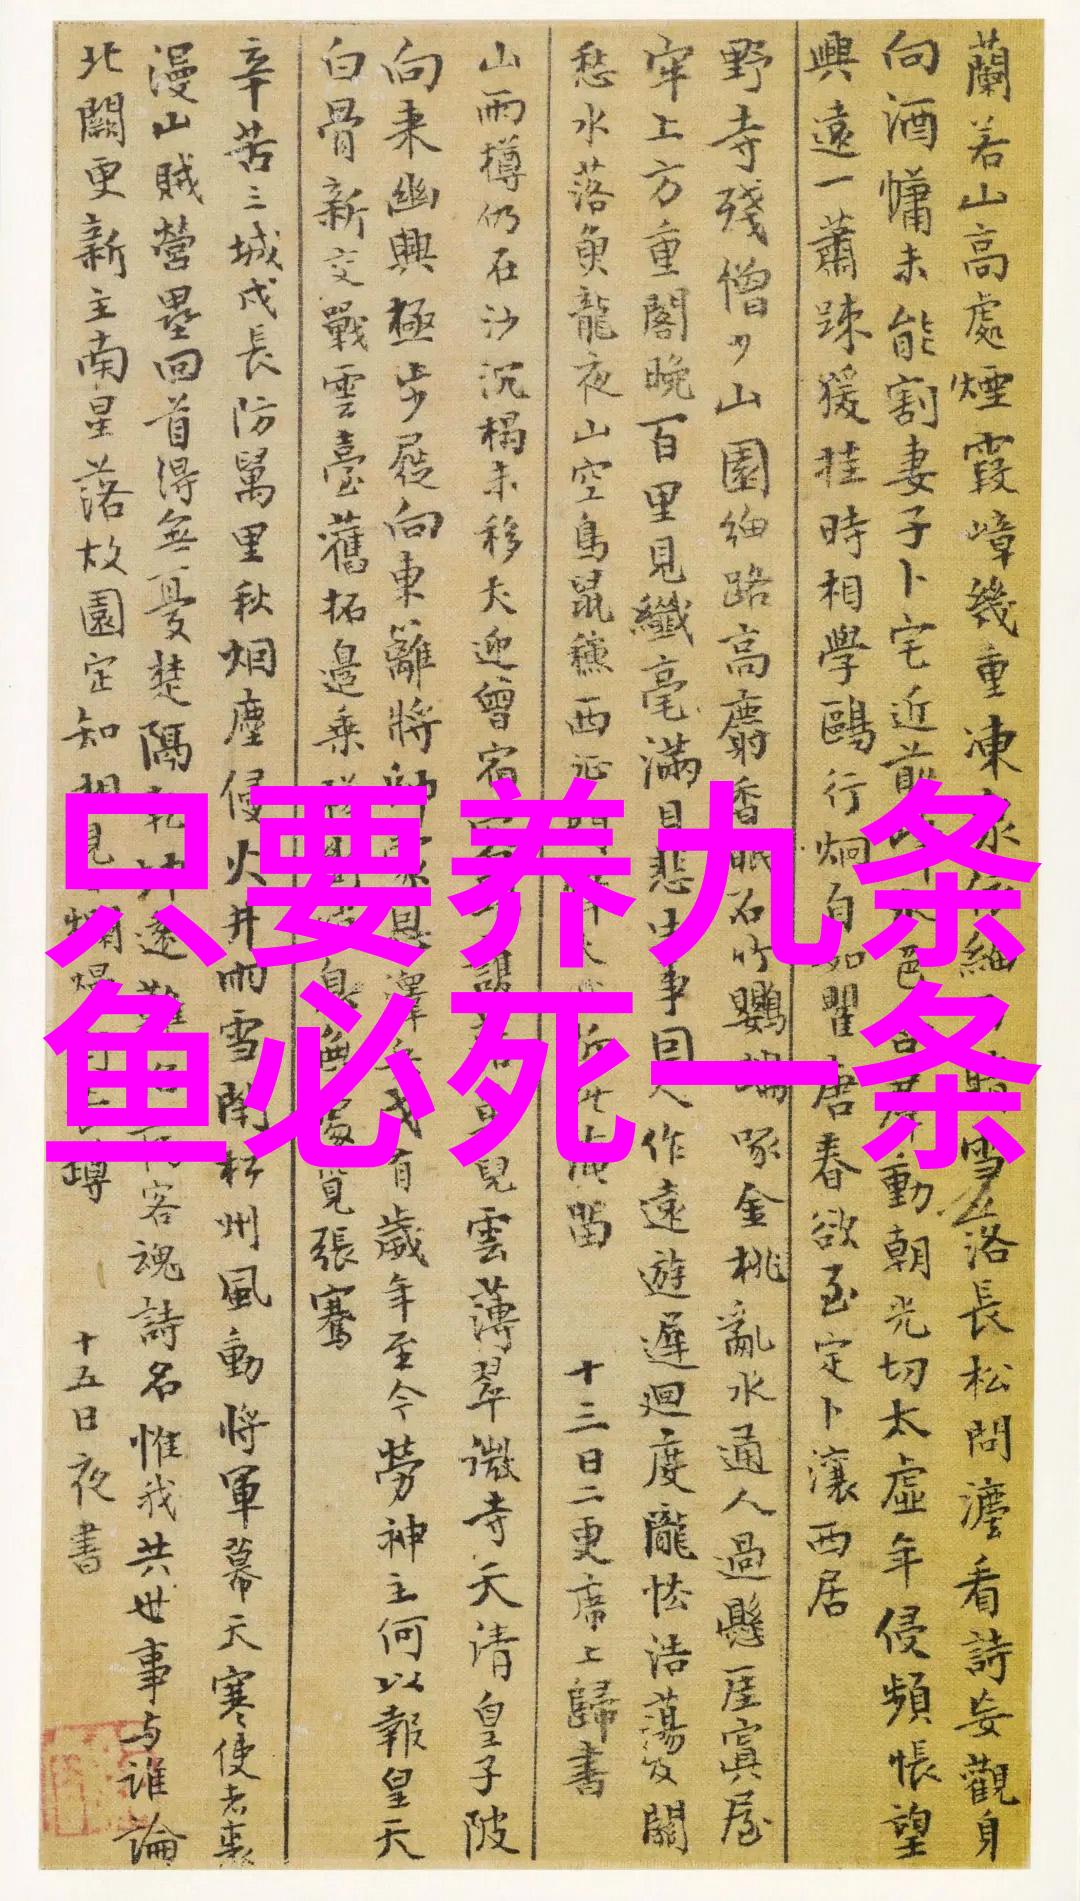 蘭若山高處煙霞嶂幾重凍雪落長松問瀍看詩妄觀身
向酒慵未能割妻子卜宅近前動朝光切太虛年侵頻悵望
興遠一蕭踈猨挂時相學鷗行炯自如瞿唐春欲至定卜瀼西居
野寺殘僧少山園細路高麝香眠石竹鸚啄金桃亂水通人過懸崖寘屋
牢上方重閣晚百里見纖毫滿目悲生事因人作遠遊遲迴度隴怯浩蕩及關
愁水落魚龍夜山空鳥鼠穐西征問 十三日二更席上歸書
山雨樽仍在沙沉榻未移犬迎曾宿雲薄翠微寺天清皇子陂
向來幽興極步屐向東籬將有歲年至今勞神主何以報皇天
白骨新交戰雲臺舊拓邊乘覓張騫
辛苦三城戍長防萬里秋烟塵侵火井雨雪閉松州風動將軍幕天寒使者裘
漫山賊營壘回首得無憂楚隔乾坤遠難客魂詩名惟我共世事与誰論
北闕更新主南星落故園定知相見罇 十五日夜書
只要养九条
鱼必死一条